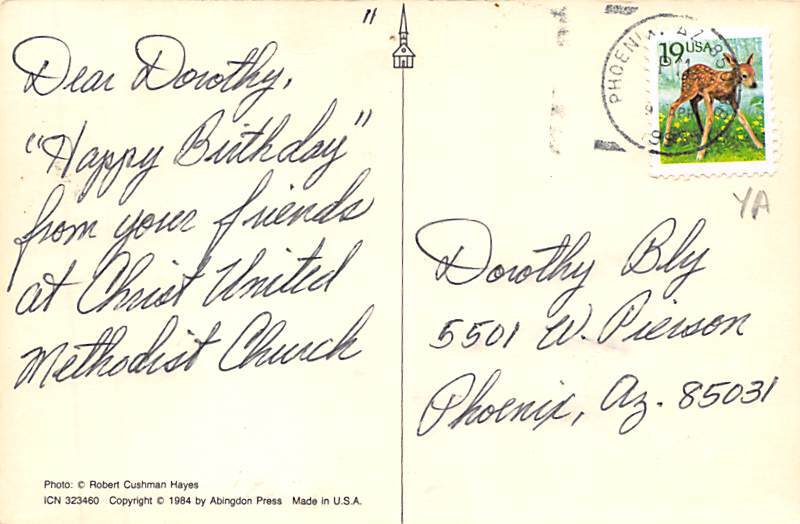 11
Dear Dorothy,
"Happy Birthday"
from your friends
at Christ United
Methodist Church
Photo: © Robert Cushman Hayes
ICN 323460 Copyright © 1984 by Abingdon Press Made in U.S.A.
PHOENIX, AZ 85
19 USA
YA
Dorothy Bly
5501 W. Pierson
Phoenix, Az. 85031